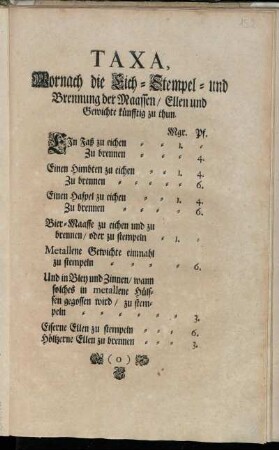 TAXA,
Wornach die Eich-Stempel- und
Brennung der Maassen/ Ellen und
Gewichte künfftig zu thun.
Mgr. Pf.
EIn Faß zu eichen 1.
Zu brennen 4.
Einen Himbten zu eichen 1. 4.
Zu brennen 6.
Einen Haspel zu eichen 1. 4.
Zu brennen 6.
Bier-Maasse zu eichen und zu
brennen/ oder zu stempeln 1.
Metallene Gewichte einmahl
zu stempeln 6.
Und in Bley und Zinnen/ wann
solches in metallene Hülf-
sen gegossen wird/ zu stem-
peln 3.
Eiserne Ellen zu stempeln 6.
Höltzerne Ellen zu brennen 3.
(0)